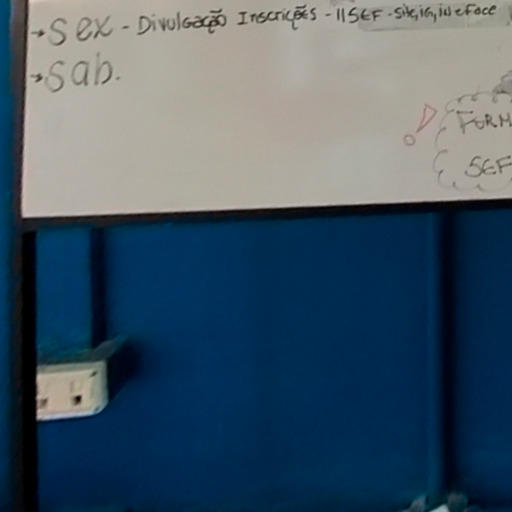 → Sex - Divulgação Inscrições - II SEF - site, ig, in e face
→ Sab.
! FORM
SEF